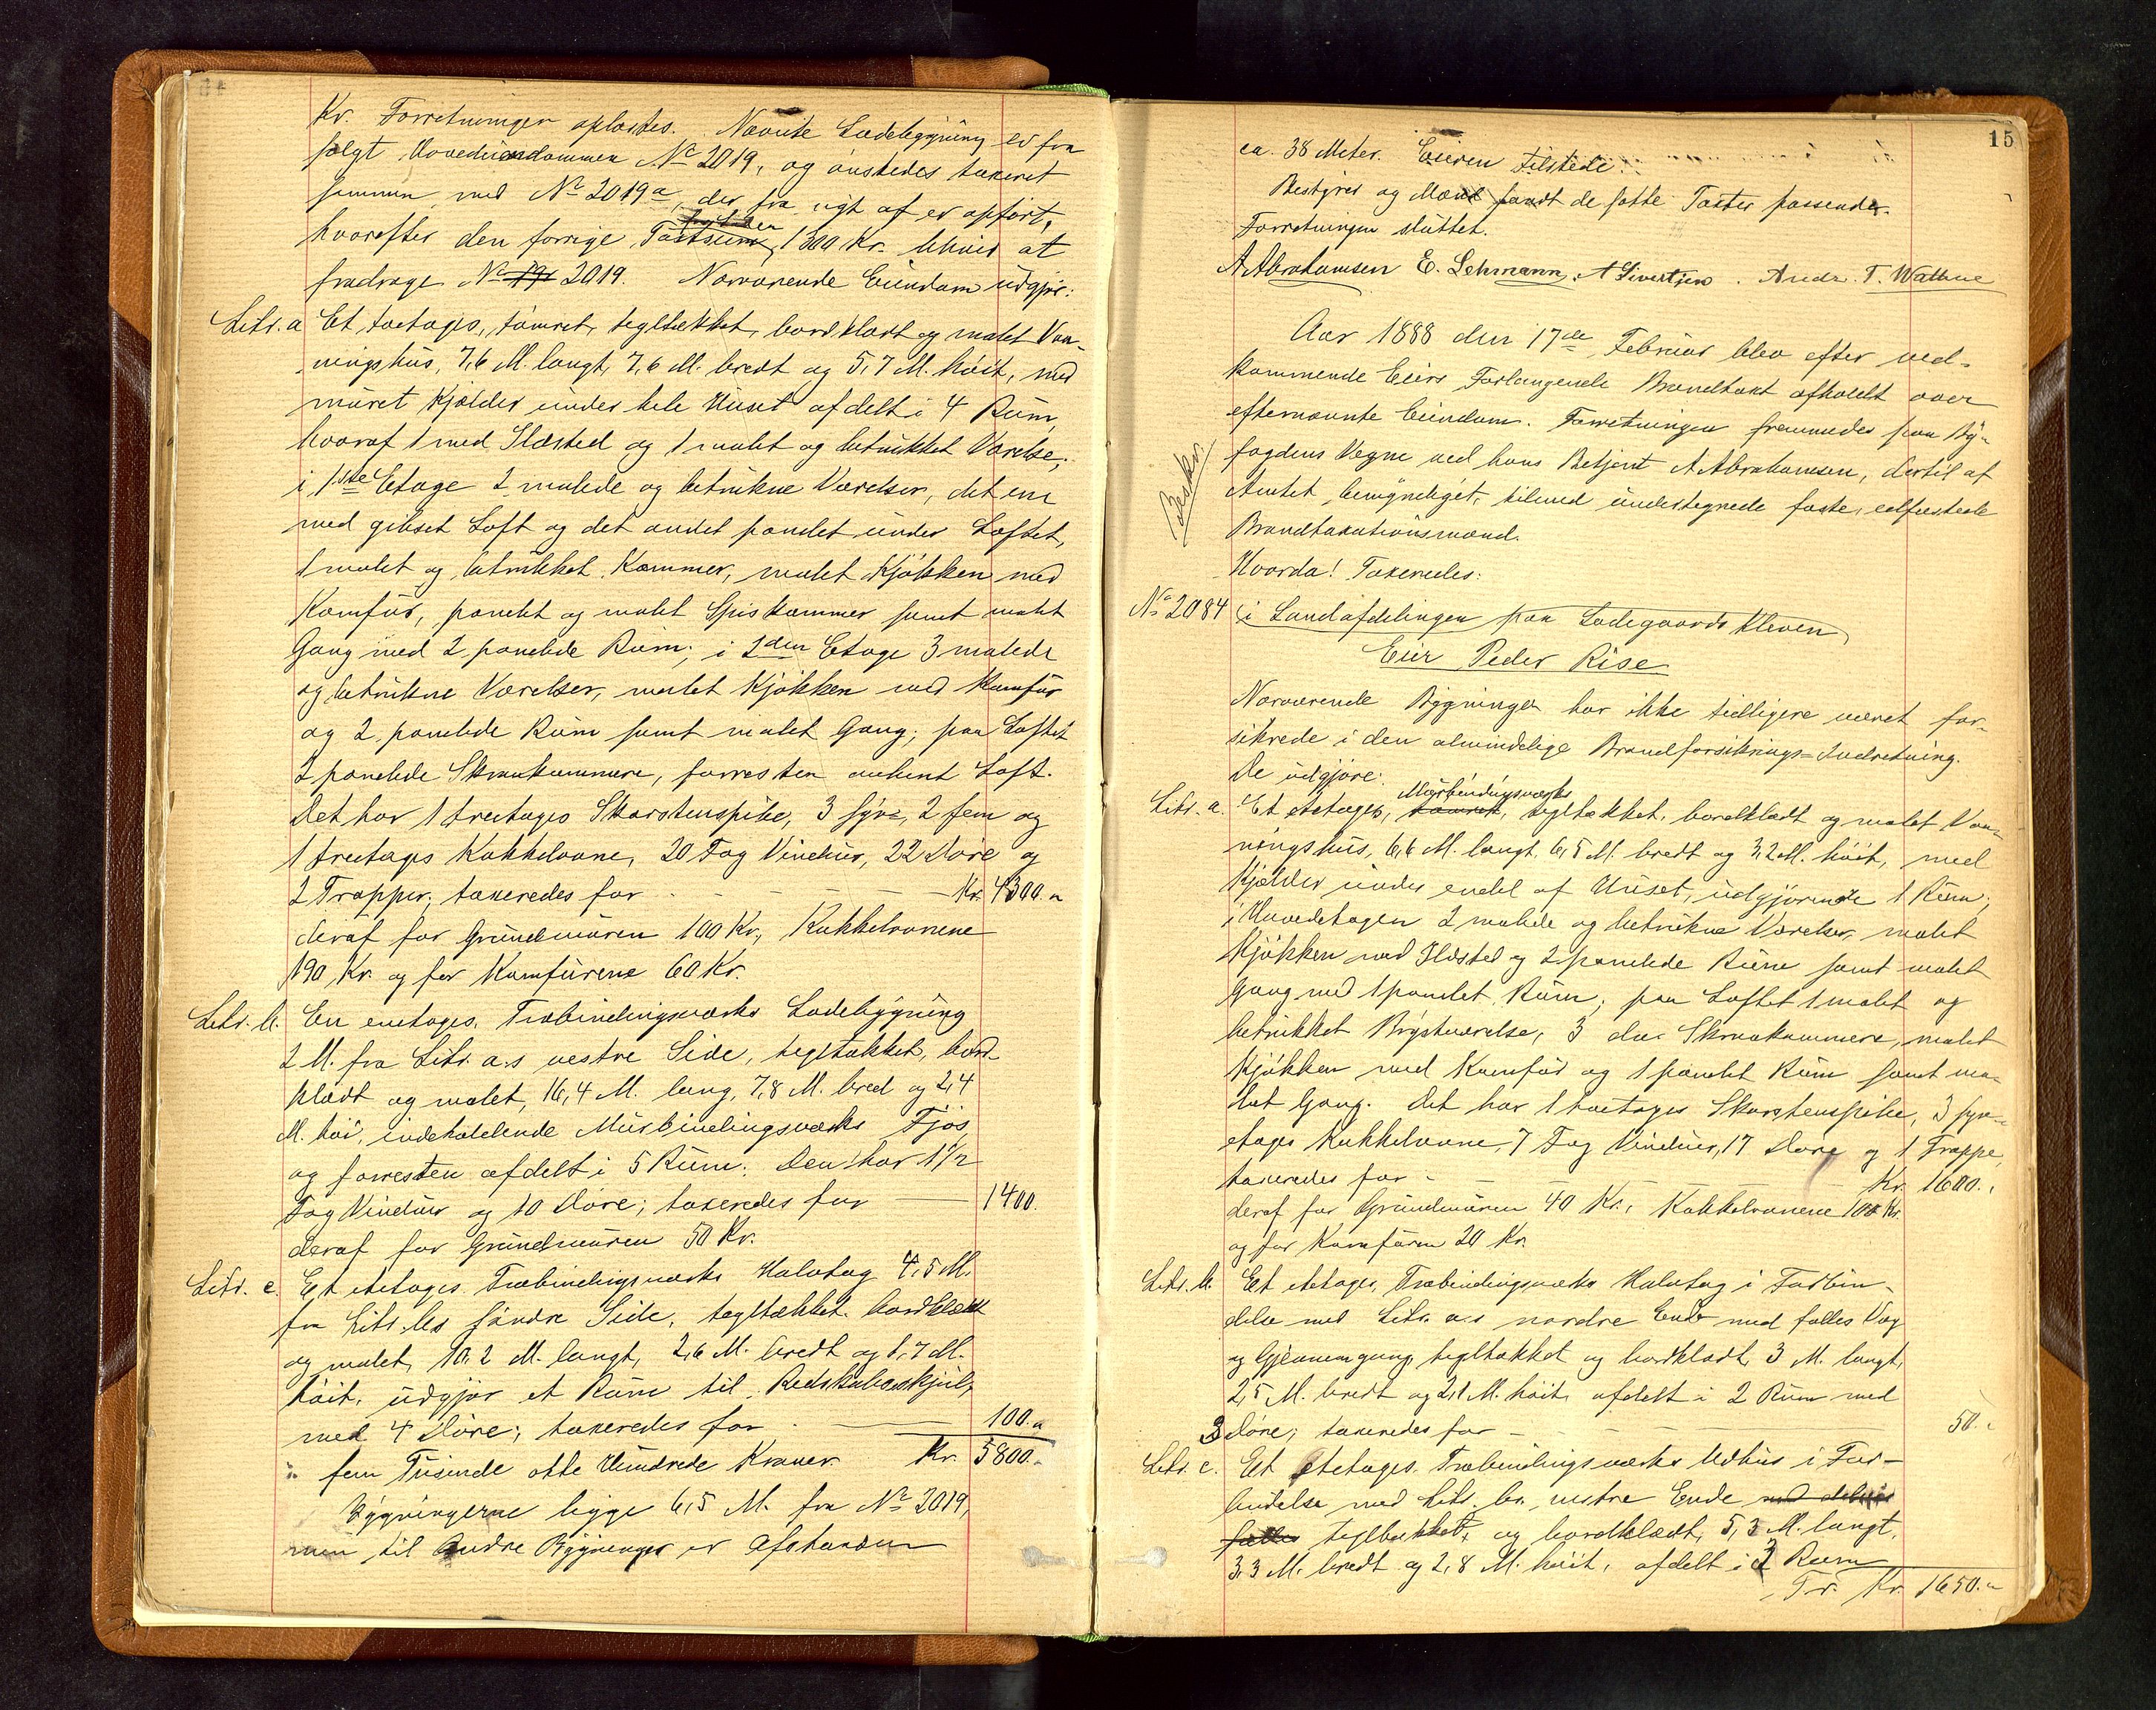 Kr. Forretningen oplæstes. Nævnte Ladebygning er fra
solgt Hovedeiendommen No 2019, og ønskedes taxeret
sammen med No 2019a, der fra nyt af er opført,
hvorefter den forrige Taxtsum 1300 Kr. bliver at
fradrage No 191 2019. Nærværende Eiendom udgjør:
Litr. a Et toetages, tømret, tegltækket, bordklædt og malet Vaa-
ningshus, 7,6 M. langt, 7,6 M. bredt og 5,7 M. høit, med
muret Kjælder under hele Huset afdelt i 4 Rum,
hvoraf 1 med Ildsted og 1 malet og betrukket Værelse;
i 1ste Etage 2 malede og betrukne Værelser, det ene
med gibset Loft og det andet panelet under Loftet,
1 malet og betrukket Kammer, malet Kjøkken med
Komfur, panelet og malet Spiskammer samt malet
Gang med 2 panelede Rum; i 2den Etage 3 malede
og betrukne Værelser, malet Kjøkken med Komfur
og 2 panelede Rum samt malet Gang; paa Loftet
2 panelede Skraakammere, forresten aabent Loft.
Det har 1 treetages Skorstenspibe, 3 syv-, 2 fem og
1 treetages Kakkelovne, 20 Fag Vinduer, 22 Døre og
2 Trapper; taxeredes for - - - Kr. 4300.„
deraf for Grundmuren 100 Kr., Kakkelovnene
190 Kr. og for Komfurene 60 Kr.
Litr. b. En eenetages, Træbindingsværks Ladebygning
2 M. fra Litr. a.s vestre Side, tegltækket, bord-
klædt og malet, 16,4 M. lang, 7,8 M. bred og 2,4
M. høi, indeholdende Murbindingsværks Fjøs
og forresten afdelt i 5 Rum. Den har 1 1/2
Fag Vinduer og 10 Døre; taxeredes for — 1400.
deraf for Grundmuren 50 Kr.
Litr. c. Et etetages Træbindingsværks Halvtag 4,5 M.
fra Litr. b.s søndre Side, tegltækket, bordklædt
og malet, 10,2 M. langt, 2,6 M. bredt og 1,7 M.
høit, udgjør et Rum til Redskabsskjul,
med 4 Døre; taxeredes for — 100.„
fem Tusinde otte Hundrede Kroner Kr. 5800.„
Bygningerne ligge 6,5 M. fra No 2019,
men til andre Bygninger er Afstanden
15
ca. 38 Meter. Eieren tilstede.
Bestyrer og Mænd fandt de satte Taxter passende.
Forretningen sluttet.
A Abrahamsen E. Lehmann. A Sivertsen. Andr. T. Wathne
Aar 1888 den 17de Februar blev efter ved-
kommende Eiers Forlangende Brandtaxt afholdt over
efternævnte Eiendom. Forretningen fremmedes paa By-
fogdens Vegne ved hans Betjent A Abrahamsen, dertil af
Beskr.
Amtet bemyndiget, tilmed undertegnede faste, edfæstede
Brandtaxationsmænd.
Hvorda! Taxeredes:
No 2084 i Landafdelingen paa Ladegaards Kleven,
Eier Peder Rise
Nærværende Bygninger har ikke tidligere været for-
sikrede i den almindelige Brandforsikrings-Indretning.
De udgjøre:
Murbindingsværks
Litr. a. Et etetages, tømret, tegltækket, bordklædt og malet Vaa-
ningshus, 6,6 M. langt, 6,5 M. bredt og 3,2 M. høit, med
Kjælder under endel af Huset, udgjørende 1 Rum;
i Hovedetagen 2 malede og betrukne Værelser, malet
Kjøkken med Ildsted og 2 panelede Rum samt malet
Gang med 1 panelet Rum; paa Loftet 1 malet og
betrukket Brystværelse, 3 do. Skraakammere, malet
Kjøkken med Komfur og 1 panelet Rum samt ma-
let Gang. Det har 1 toetages Skorstenspibe, 3 syv-
etages Kakkelovne, 7 Fag Vinduer, 17 Døre og 1 Trappe,
taxeredes for - - - Kr. 1600.„
deraf for Grundmuren 40 Kr., Kakkelovnene 100 Kr.
og for Komfuren 20 Kr.
Litr. b. Et etetages, Træbindingsværks Halvtag i Forbin-
delse med Litr. a.s nordre Ende med fælles Væg
og Gjennemgang, tegltækket og bordklædt, 3 M. langt,
2,5 M. bredt og 2,1 M. høit, afdelt i 2 Rum med
3 Døre; taxeredes for - - - 50.„
Litr. c. Et etetages, Træbindingsværks Udhus i For-
bindelse med Litr. b.s vestre Ende med delvis
fælles tegltækket, og bordklædt, 5,3 M. langt,
3,3 M. bredt og 2,8 M. høit, afdelt i 3 Rum
Tr. Kr. 1650.„